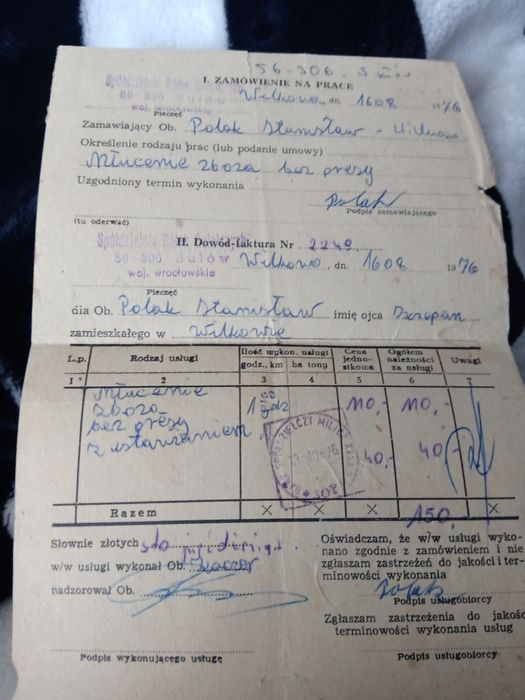 56-306
I. ZAMÓWIENIE NA PRACE
Spółdzielnia Kółek
56-300 Sułów
woj. wrocławskie
Wilkowo, dn. 1608 1976
Pieczęć
Zamawiający Ob. Polak Stanisław -
Określenie rodzaju prac (lub podanie umowy)
Młucenie zboża bez presy
Uzgodniony termin wykonania
Polak
Podpis zamawiającego
(tu oderwać)
Spółdzielnia Kółek
56-300 Sułów
woj. wrocławskie
II. Dowód-faktura Nr 2249
Wilkowo, dn. 1608 1976
Pieczęć
dla Ob. Polak Stanisław imię ojca Szczepan
zamieszkałego w Wilkowie
L.p. Rodzaj usługi Ilość wykon. usługi godz., km ha tony Cena jedno-stkowa Ogółem należności za usługi Uwagi
1 2 3 4 5 6 7
Młucenie
zboża 1 godz 110,- 110,-
bez presy
z ustawianiem 1 40,- 40,-
Razem × × × 150,- ×
Słownie złotych sto
w/w usługi wykonał Ob.
nadzorował Ob.
Podpis wykonującego usługę
Oświadczam, że w/w usługi wyko-
nano zgodnie z zamówieniem i nie
zgłaszam zastrzeżeń do jakości i ter-
minowości wykonania
Polak
Podpis usługobiorcy
Zgłaszam zastrzeżenia do jakości
terminowości wykonania usług
Podpis usługobiorcy